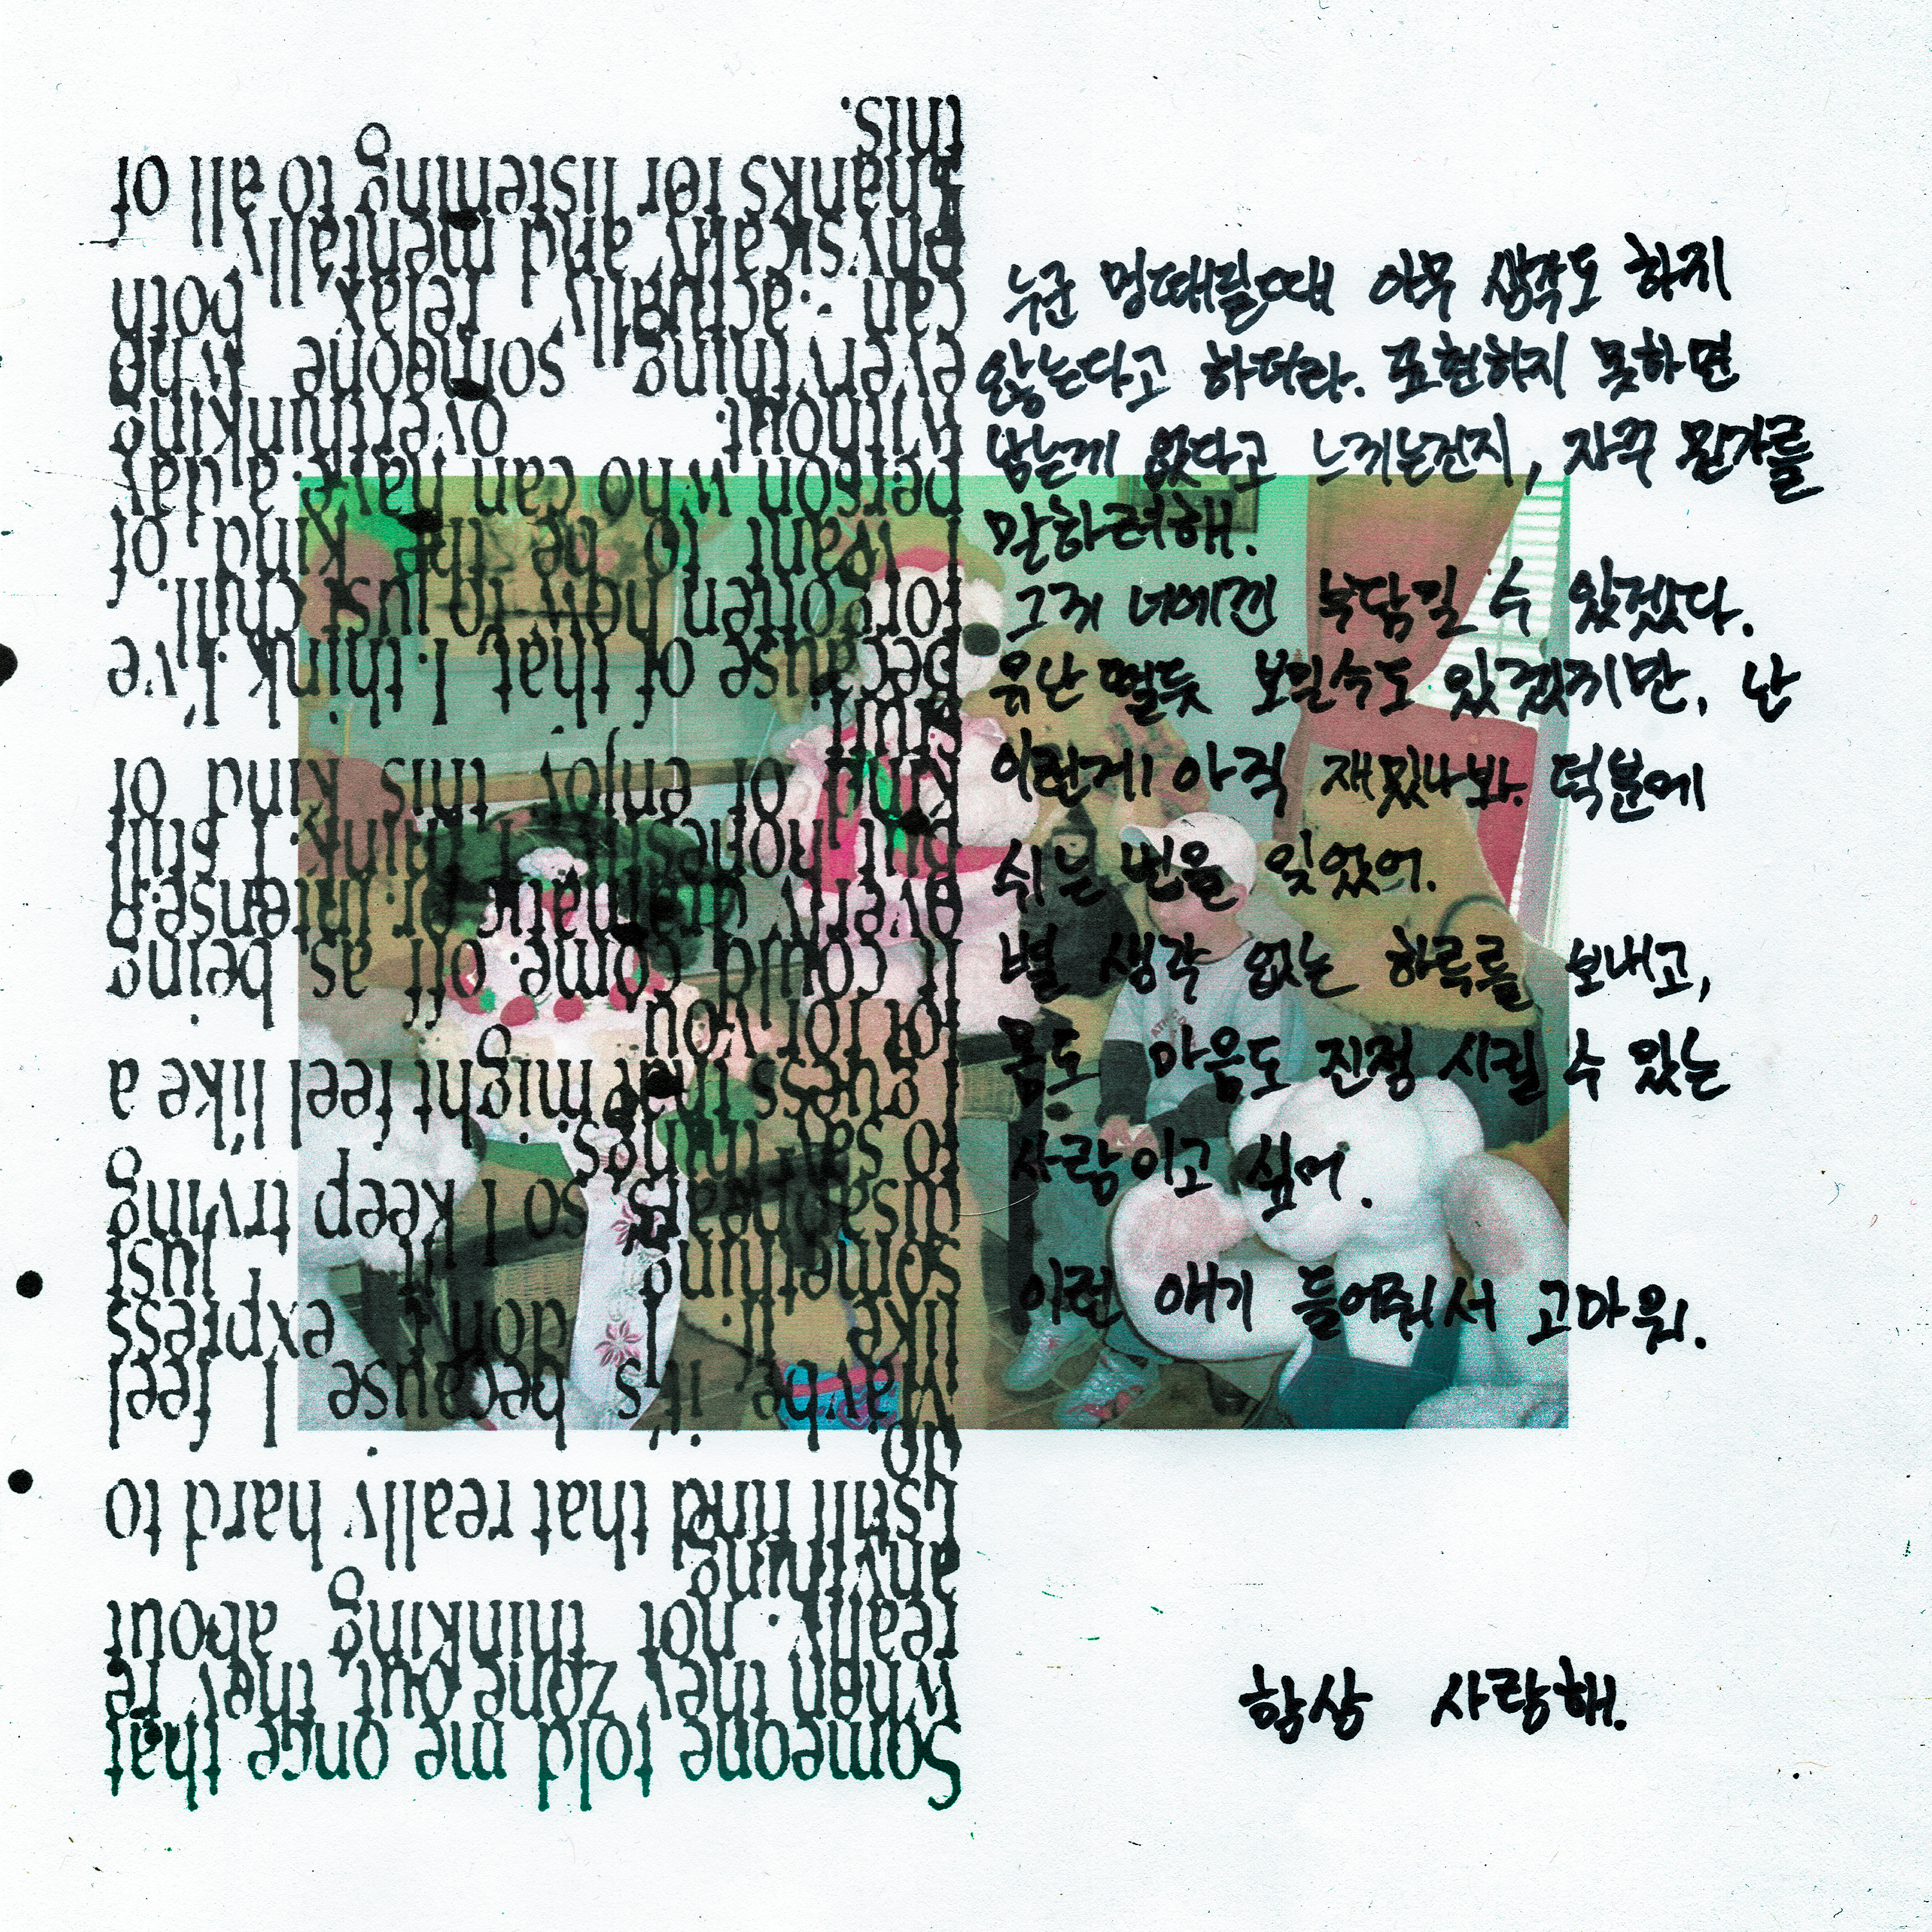 Someone told me once that
when they zone out, they're
really not thinking about
anything.
I still find that really hard to
do.
Maybe it's because I feel
like if I don't express
something, it just
disappears, so I keep trying
to say things.
I guess that might feel like a
lot for you
It could come off as being
overly dramatic or intense,
but honestly, I think I still
kind of enjoy this kind of
stuff.
Because of that, I think I've
forgotten how to just chill.
I want to be the kind of
person who can have a day
without overthinking
everything someone who
can actually relax both
physically and mentally.
Thanks for listening to all of
this.
누군 멍때릴때 아무 생각도 하지
않는다고 하더라. 표현하지 못하면
남는게 없다고 느끼는건지, 자꾸 뭔가를
말하려해.
그게 너에겐 부담일 수 있겠다.
유난떨듯 보일수도 있겠지만, 난
이런게 아직 재밌나봐. 덕분에
쉬는 법을 잊었어.
별 생각 없는 하루를 보내고,
몸도 마음도 진정 시킬 수 있는
사람이고 싶어.
이런 얘기 들어줘서 고마워.
항상 사랑해.